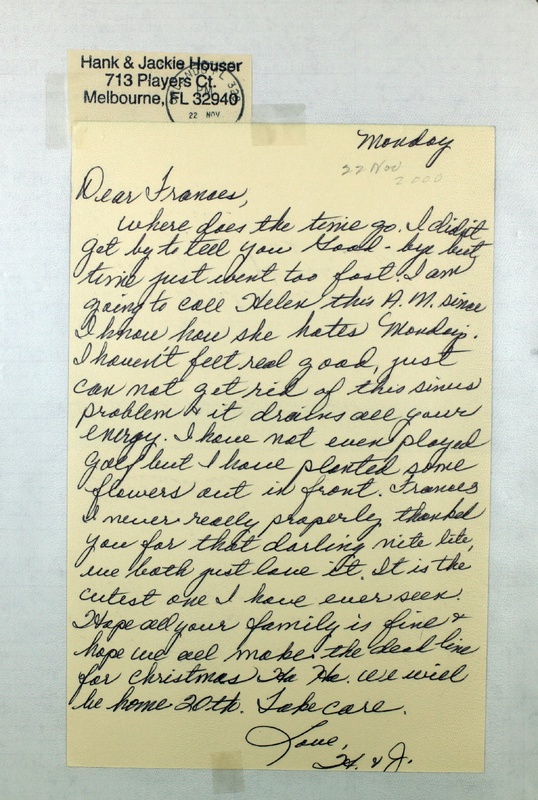 Hank & Jackie Houser
713 Players Ct.
Melbourne, FL 32940
22 NOV
Monday
22 Nov
2000
Dear Frances,
Where does the time go. I didn't
get by to tell you Good-bye but
time just went too fast. I am
going to call Helen this A.M. since
I know how she hates Mondays.
I haven't felt real good, just
can not get rid of this sinus
problem & it drains all your
energy. I have not even played
golf but I have planted some
flowers out in front. Frances
I never really properly thanked
you for that darling nite lite,
we both just love it. It is the
cutest one I have ever seen.
Hope all your family is fine &
hope we all make the dead line
for Christmas Ha Ha. We will
be home 20th. Take care.
Love,
H. & J.